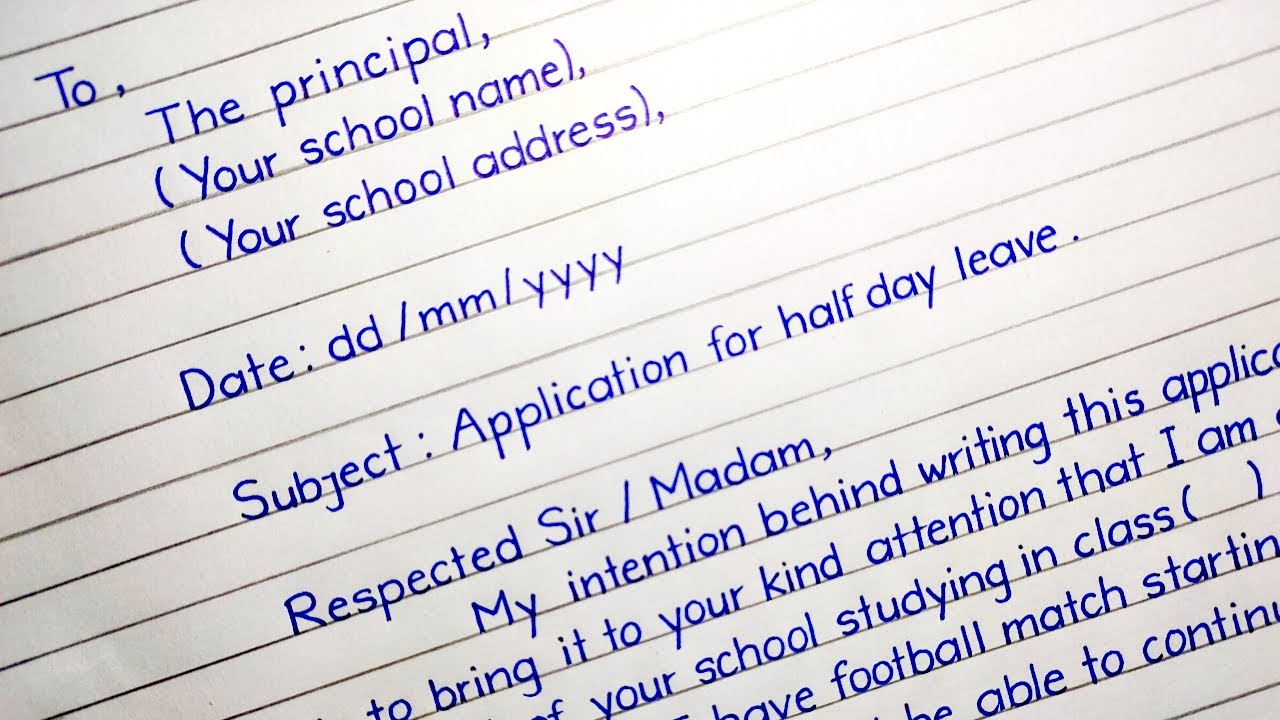 To,
The principal,
(Your school name),
(Your school address),
Date: dd/mm/yyyy
Subject: Application for half day leave.
Respected Sir / Madam,
My intention behind writing this
to bring it to your kind attention that I am
of your school studying in class( )
have football match
be able to